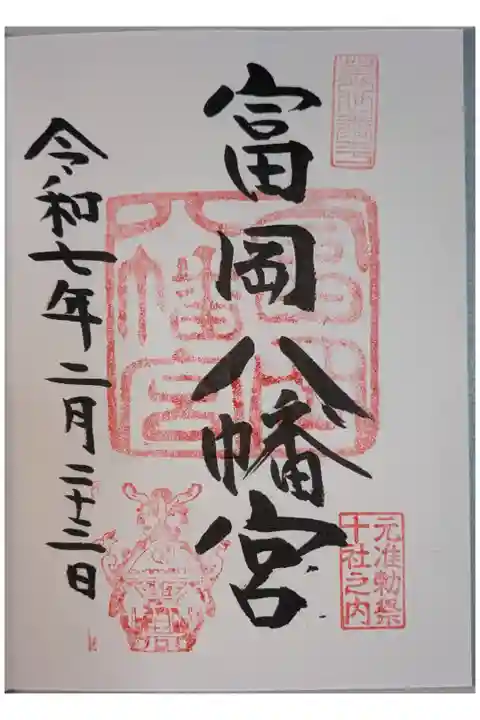 富岡八幡宮
元准勅祭
十社之内
令和七年二月二十三日